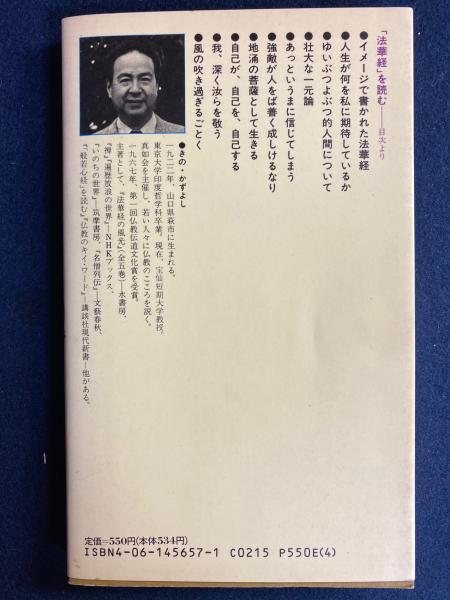 「法華経」を読む──目次より
●イメージで書かれた法華経
●人生が何を私に期待しているか
●ゆいぶつよぶつ的人間について
●壮大な一元論
●あっというまに信じてしまう
●強敵が人をば善く成しけるなり
●地涌の菩薩として生きる
●自己が、自己を、自己する
●我、深く汝らを敬う
●風の吹き過ぎるごとく
●きの・かずよし
一九二二年、山口県萩市に生まれる。
東京大学印度哲学科卒業。現在、宝仙短期大学教授、
真如会を主催し、若い人々に仏教のこころを説く。
一九六七年、第一回仏教伝道文化賞を受賞。
主著として、『法華経の風光』(全五巻)─水書房、
『禅』『遍歴放浪の世界』─NHKブックス、
『いのちの世界』─筑摩書房、『名僧列伝』─文藝春秋、
『「般若心経」を読む』『仏教のキイ・ワード』─講談社現代新書─他がある。
定価=550円(本体534円)
ISBN4-06-145657-1 C0215 P550E(4)